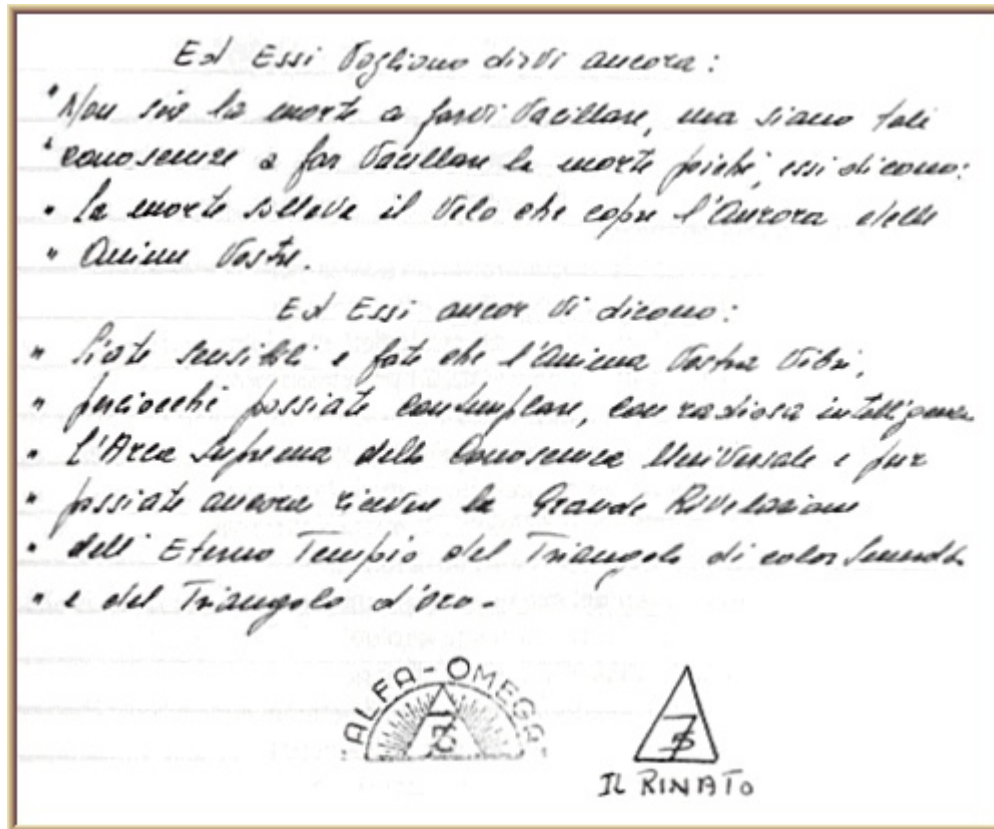 Ed Essi Vogliono dirVi ancora:
" Non sia la morte a farVi Vacillare, ma siano tali
" conoscenze a far Vacillare la morte poiché, essi dicono:
" La morte solleva il Velo che copre l'Aurora delle
" Anime Vostre.
Ed Essi ancor Vi dicono:
" Siate sensibili e fate che l'Anima Vostra Vibri,
" perciocché possiate contemplare, con radiosa intelligenza
" l'Arca Suprema della Conoscenza Universale e pur
" possiate ancora ricevere la Grande RiVelazione
" dell' Eterno Tempio del Triangolo di color Smeraldo
" e del Triangolo d'oro-
"ALFA-OMEGA"
IL RINATO